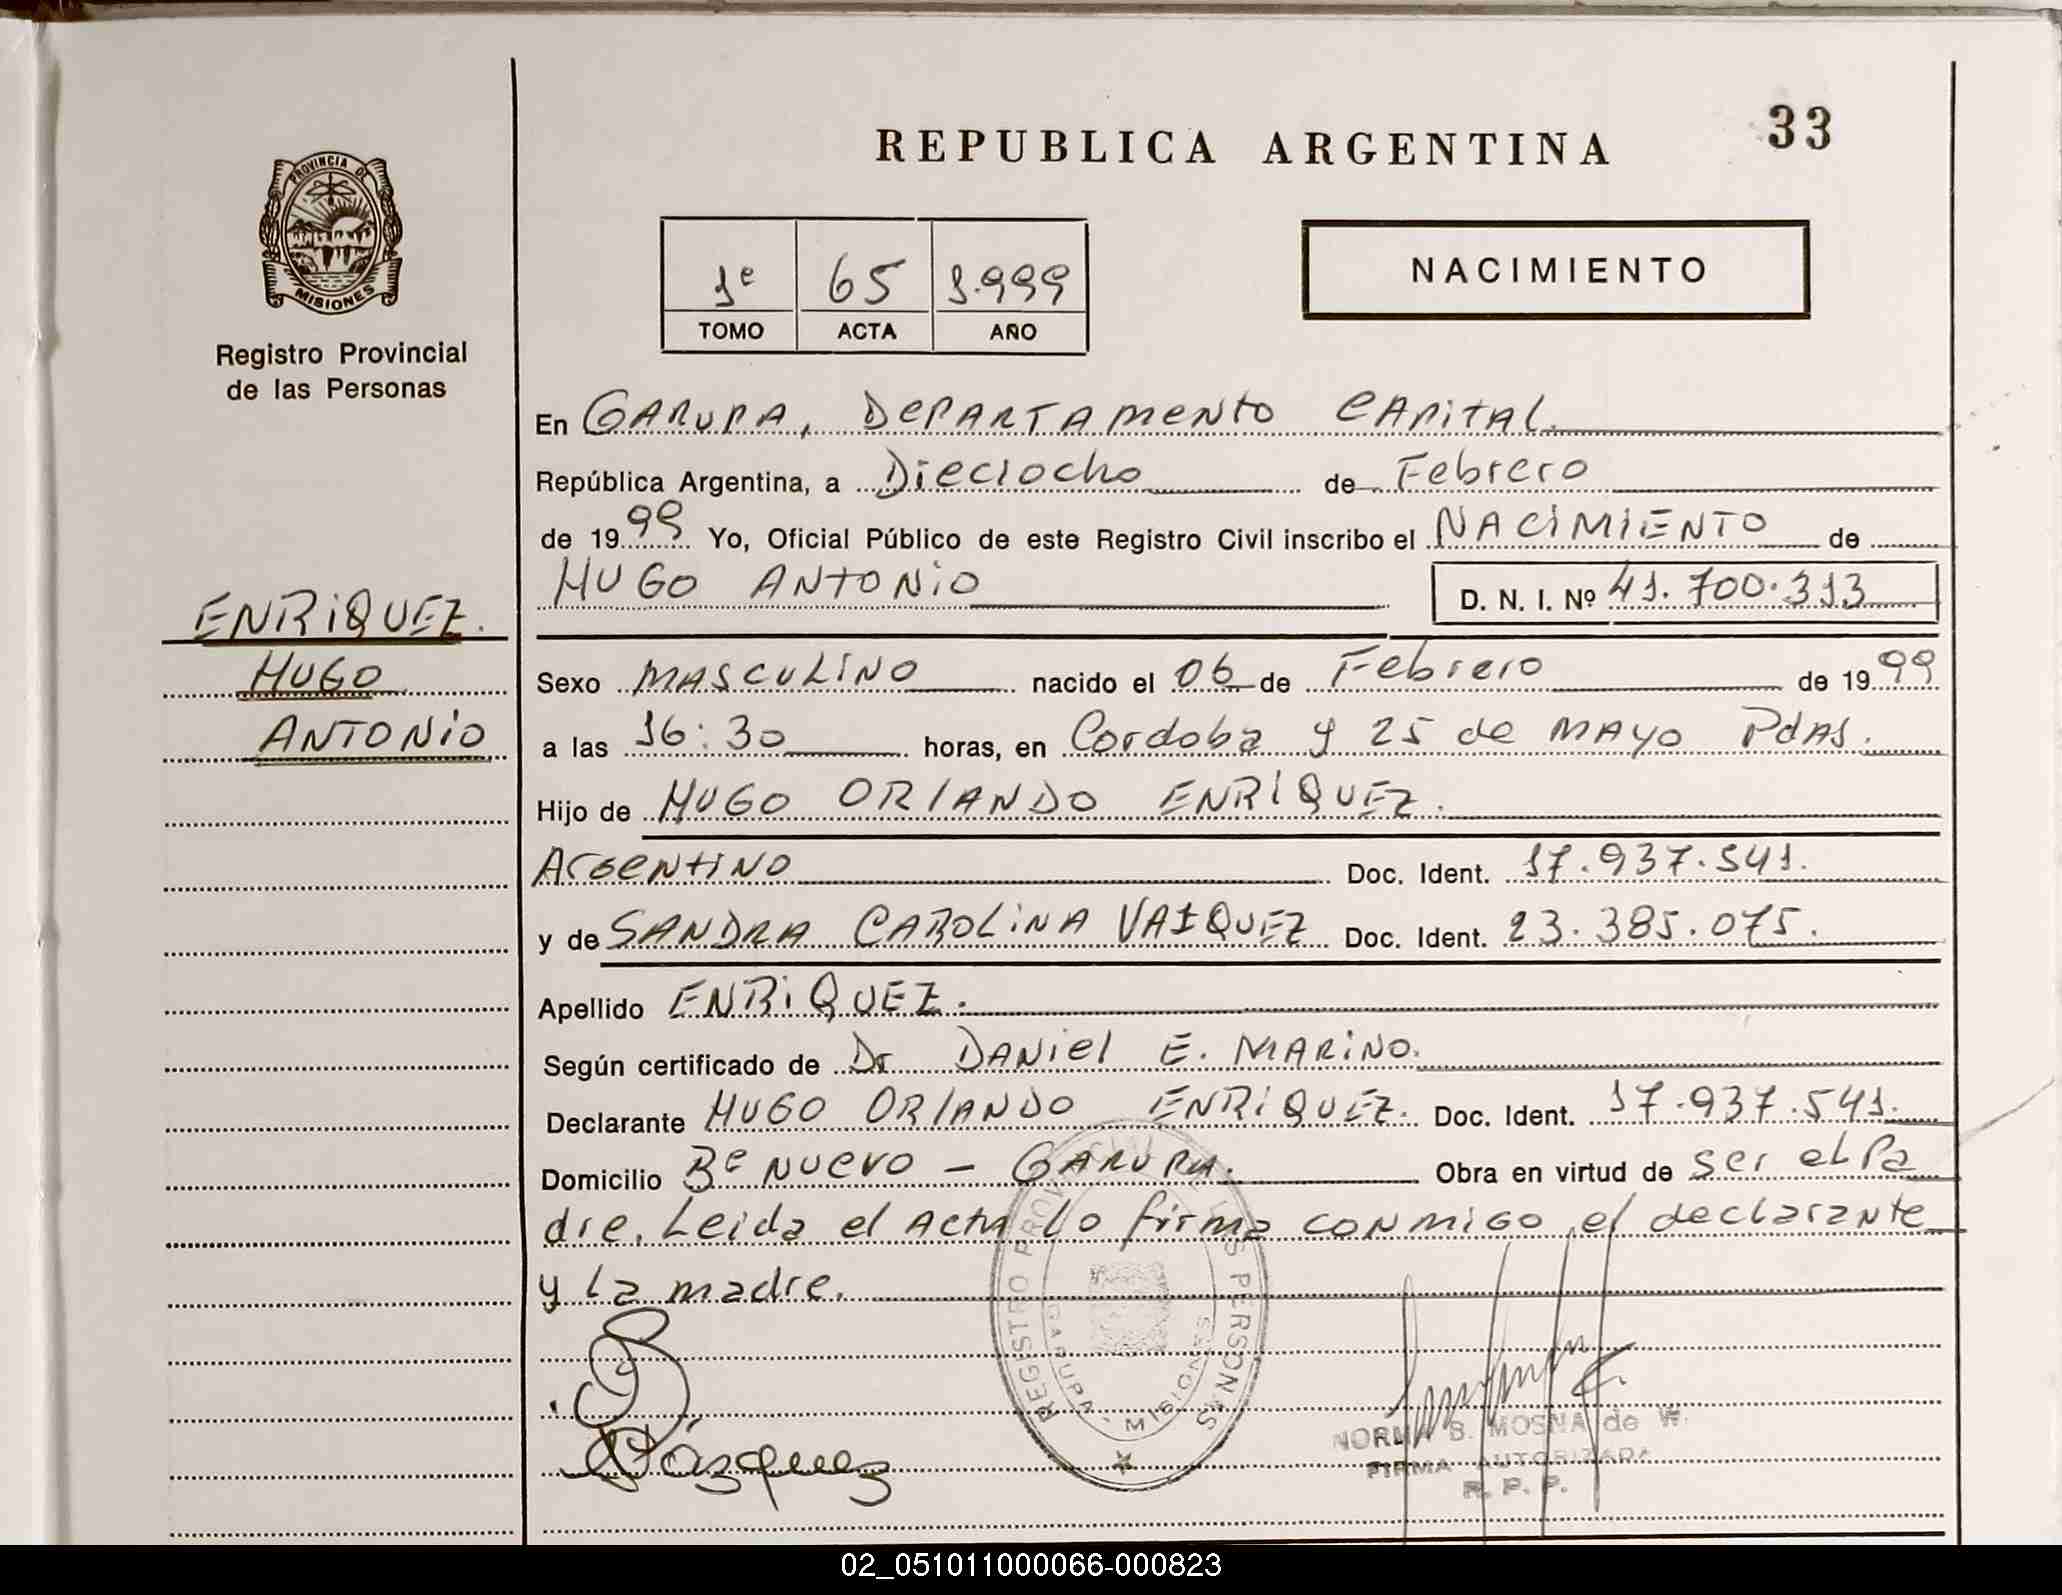 33
REPUBLICA ARGENTINA
PROVINCIA DE
MISIONES
Registro Provincial
de las Personas
1º 65 1.999
TOMO ACTA AÑO
NACIMIENTO
En GARUPA, DEPARTAMENTO CAPITAL.
República Argentina, a Dieciocho de Febrero
de 1999 Yo, Oficial Público de este Registro Civil inscribo el NACIMIENTO de
HUGO ANTONIO D. N. I. Nº 41.700.313
ENRIQUEZ.
HUGO
ANTONIO
Sexo MASCULINO nacido el 06 de Febrero de 1999
a las 16:30 horas, en Cordoba y 25 de MAYO PdAS.
Hijo de HUGO ORLANDO ENRIQUEZ.
Argentino Doc. Ident. 17.937.541.
y de SANDRA CAROLINA VAZQUEZ Doc. Ident. 23.385.075.
Apellido ENRIQUEZ.
Según certificado de Dr DANIEL E. MARINO.
Declarante HUGO ORLANDO ENRIQUEZ. Doc. Ident. 17.937.541.
Domicilio Bº NUEVO - GARUPA. Obra en virtud de ser el Pa
dre. Leida el Acta lo firma conmigo el declarante
y la madre.
REGISTRO PROVINCIAL DE LAS PERSONAS
GARUPA - MISIONES
Vázquez
NORMA B. MOSNA de W.
FIRMA AUTORIZADA
R. P. P.
02_051011000066-000823